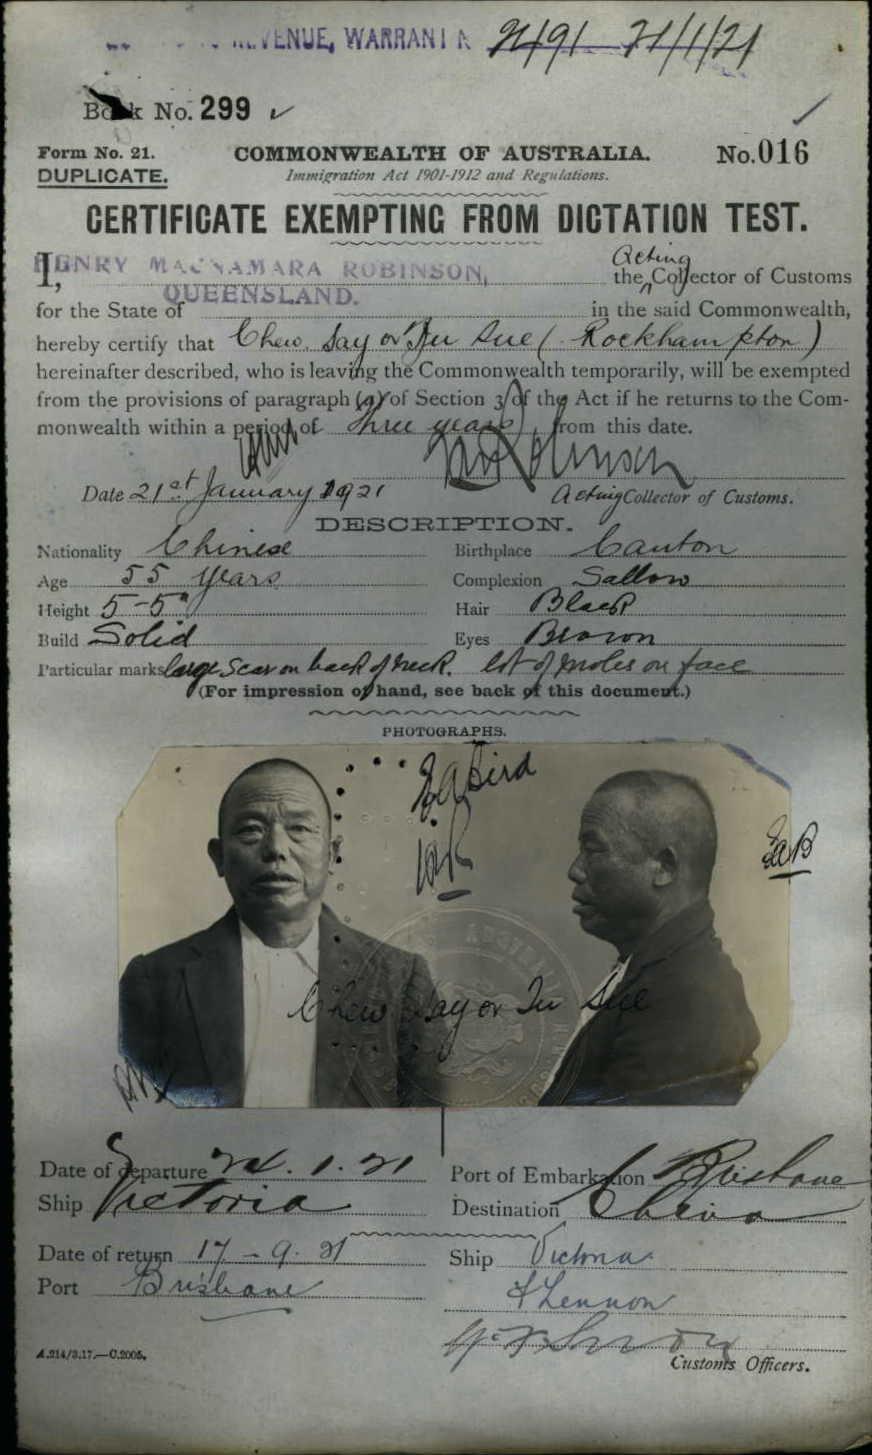 REVENUE, WARRANT
21/1/21
Book No. 299
Form No. 21.
COMMONWEALTH OF AUSTRALIA.
No. 016
DUPLICATE.
Immigration Act 1901-1912 and Regulations.
CERTIFICATE EXEMPTING FROM DICTATION TEST.
I, HENRY MACNAMARA ROBINSON, the Acting Collector of Customs
for the State of QUEENSLAND. in the said Commonwealth,
hereby certify that Chew Say or Tu Sue (Rockhampton)
hereinafter described, who is leaving the Commonwealth temporarily, will be exempted
from the provisions of paragraph (a) of Section 3 of the Act if he returns to the Com-
monwealth within a period of three years from this date.
Date 21st January 1921
Acting Collector of Customs.
DESCRIPTION.
Nationality Chinese
Birthplace Canton
Age 55 years
Complexion Sallow
Height 5-5"
Hair Black
Build Solid
Eyes Brown
Particular marks large scar on back of neck. lot of moles on face
(For impression of hand, see back of this document.)
PHOTOGRAPHS.
Bird
Chew Say or Tu Sue
Date of departure 24.1.21
Port of Embarkation Brisbane
Ship Victoria
Destination China
Date of return 17-9-21
Ship Victoria
Port Brisbane
Lennon
A.214/3.17.—C.2005.
Customs Officers.